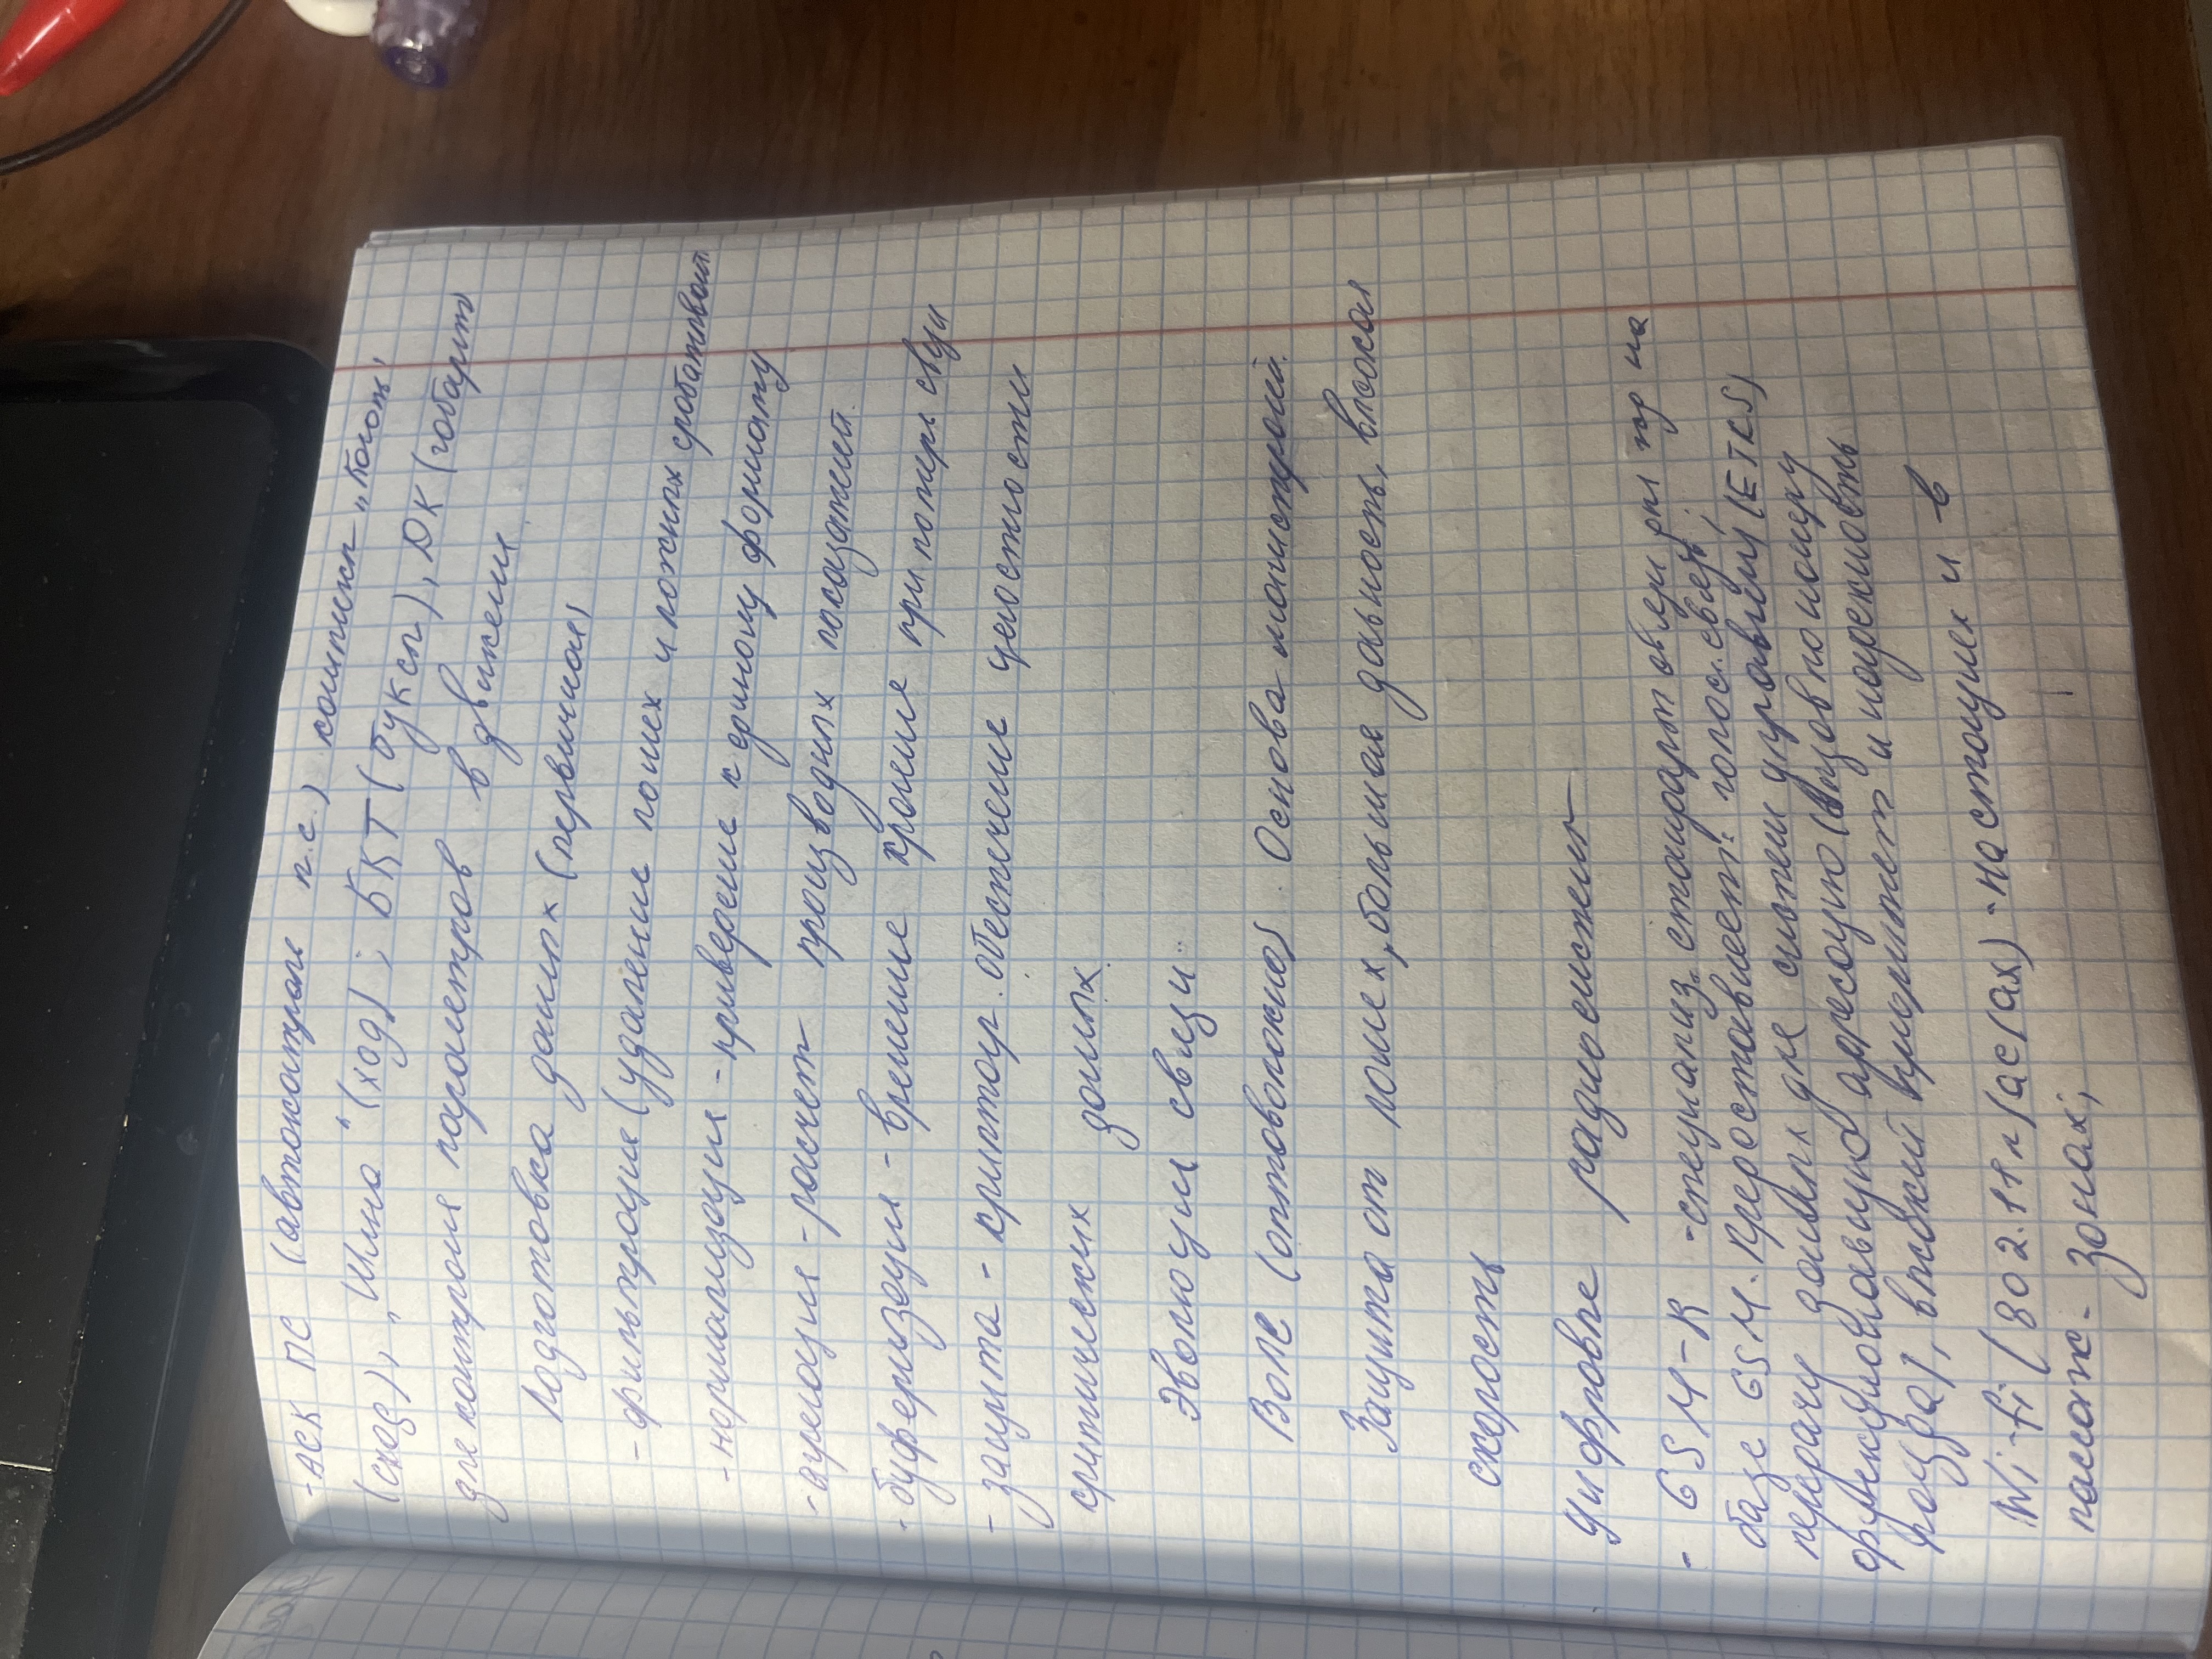 - АСК ПС (автоконтроль п.с.) комплекс „Коготь"
(сход), „Шина" (ход), БКТ (буксы), DK (габарит
для контроля параметров в движении.
Подготовка данных (первичная)
- фильтрация (удаление помех и ложных срабатыван
- нормализация - приведение к единому формату
- агрегация - расчет производных показателей.
- буферизация - временное хранение при потере связи
- защита - криптогр. обеспечение целостности
критических данных
Эволюция связи..
ВОЛС (оптоволокно) Основа магистралей.
Защита от помех, большая дальность, высокая
скорость
цифровые радиосистемы
- GSM-R - специализ. стандарт обл ж/д на
базе GSM. Предоставляет: голос. связь,
передачу данных для системы управлени (ETRS)
функциональную адресацию (вызов по номеру
поезда), высокий приоритет и надежность
Wi-fi (802.11n/ac/ax) - на станциях и в
пассаж- зонах;